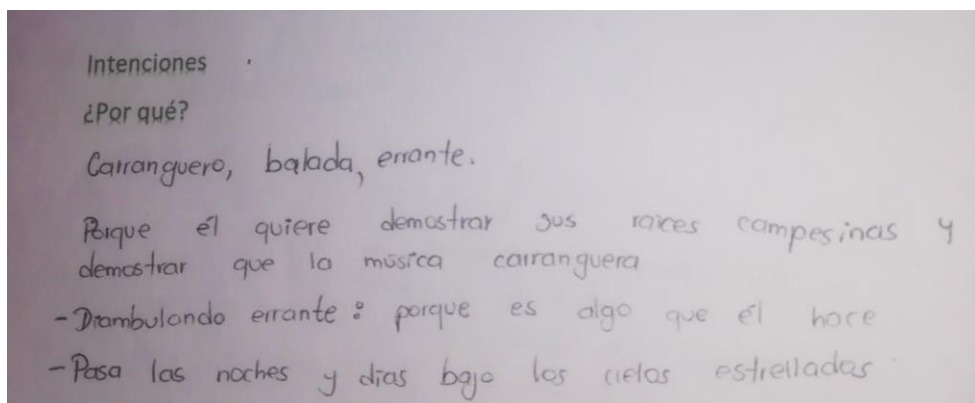 Intenciones
¿Por qué?
Carranguero, balada, errante.
Porque él quiere demostrar sus raices campesinas y
demostrar que la música carranguera
- Diambulando errante: porque es algo que él hace
- Pasa las noches y dias bajo los cielos estrellados